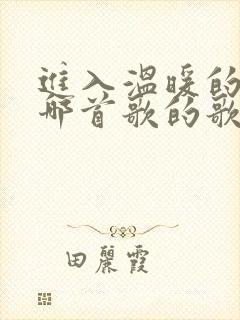 進入溫暖的
哪首歌的歌
田麗霞